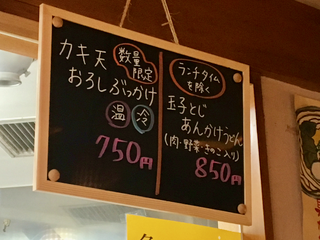 カキ天
数量
限定
おろしぶっかけ
温 冷
750円
ランチタイム
を除く
玉子とじ
あんかけうどん
(肉・野菜・きのこ入り)
850円